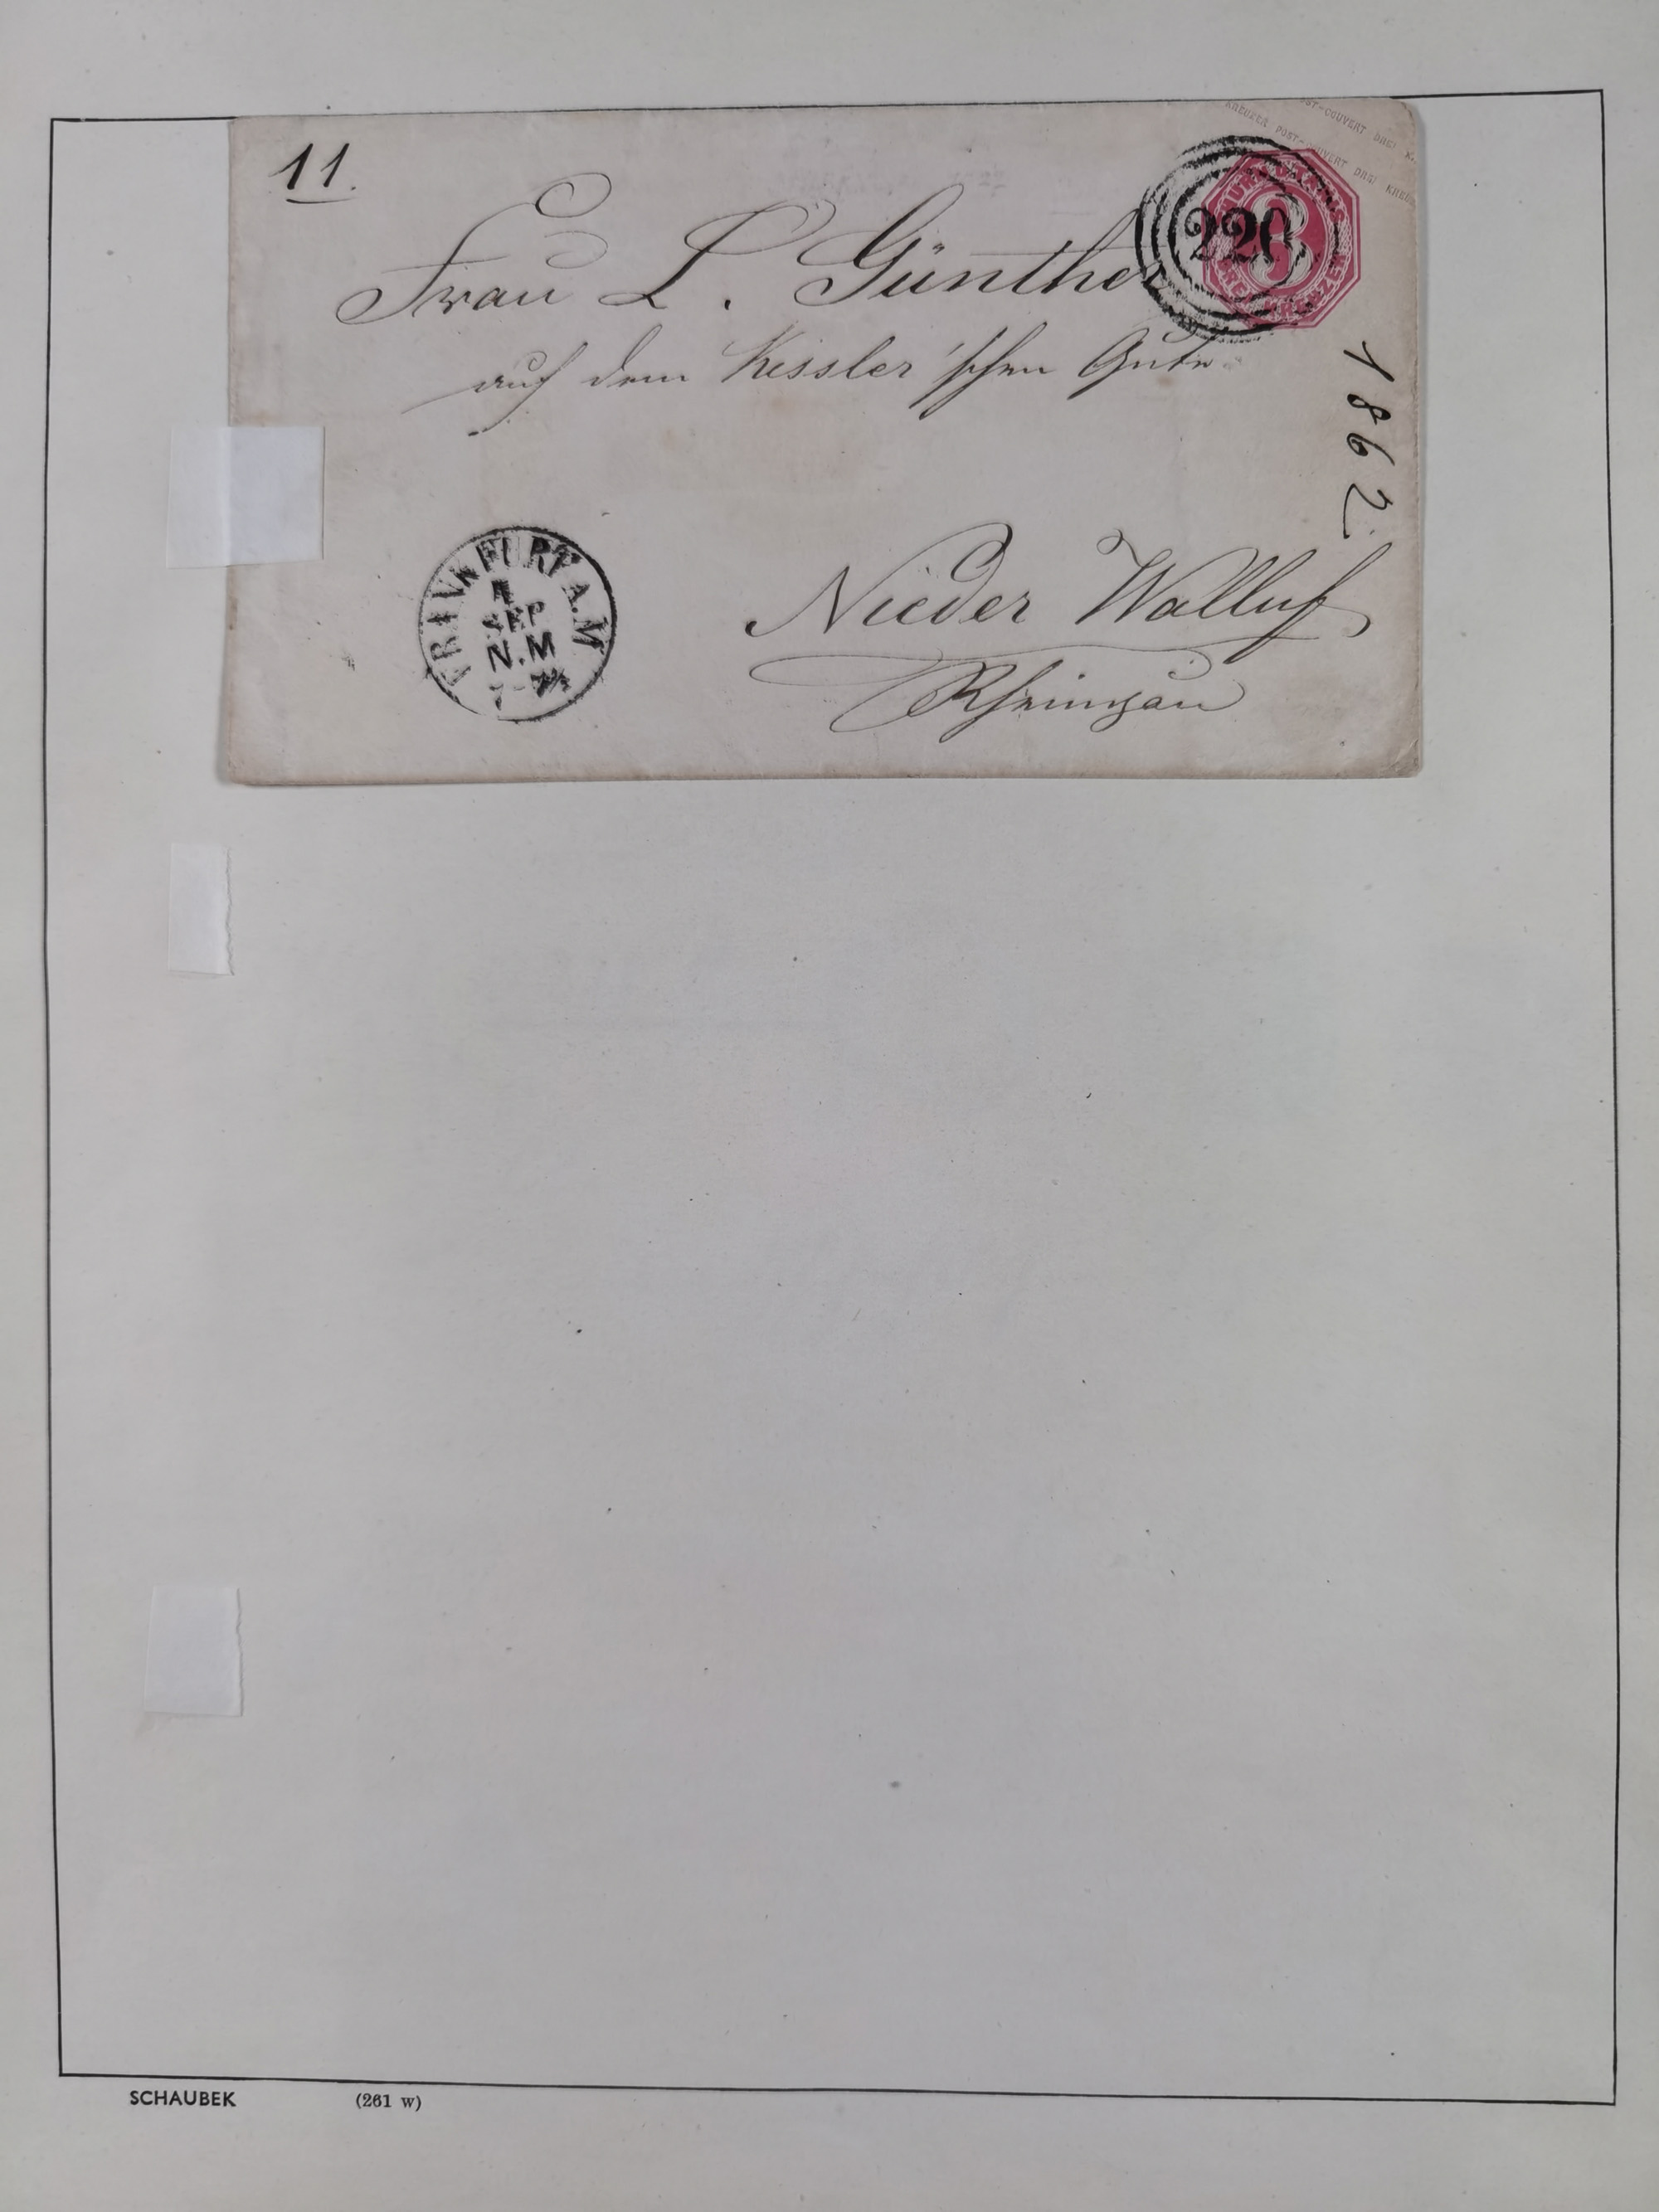 11.
POST-COUVERT DREI K
KREUZER POST-COUVERT DREI KREUZ
220
3
Frau L. Günther
auf dem Kessler'schen Gute
1862
FRANKFURT A. M
4
SEP
N. M
7-7½
Nieder Walluf
Rheingau
SCHAUBEK (261 w)